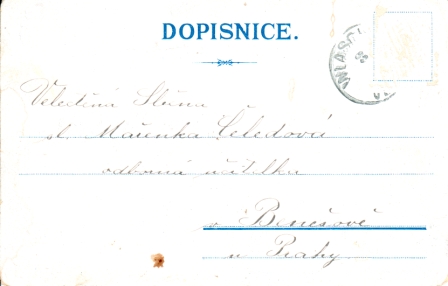 DOPISNICE.
WLASCH
Velectěná Slečna
sl. Mařenka Čeledová
odborná učitelka
v Benešově
u Prahy